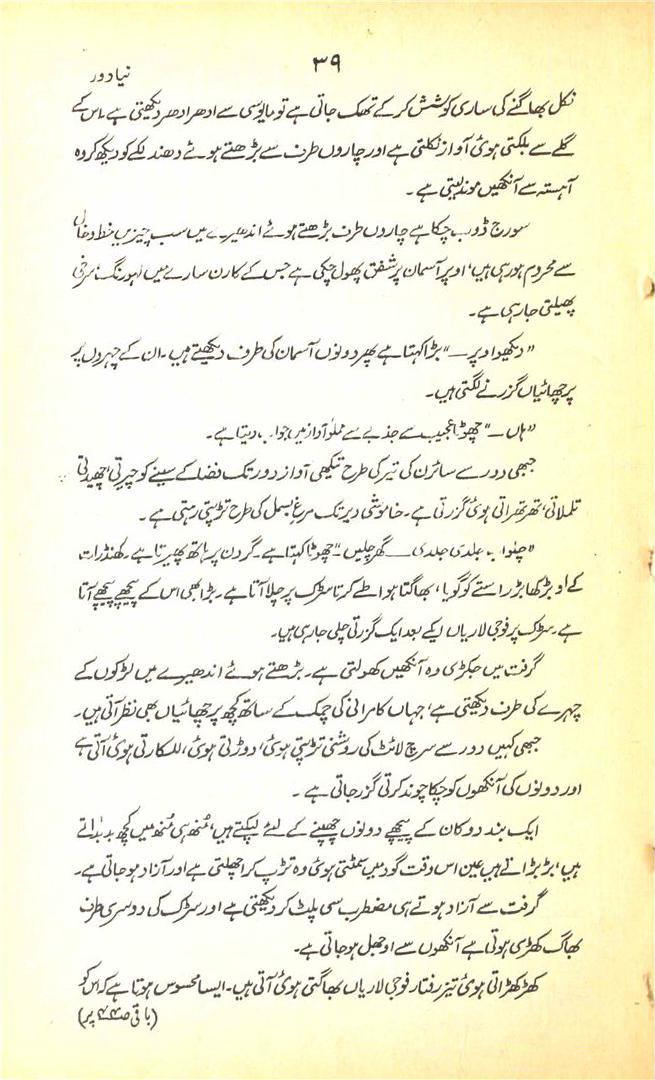 ۳۹
نیا دور
نکل بھاگنے کی ساری کوشش کر کے تھک جاتی ہے تو مایوسی سے ادھر ادھر دیکھتی ہے۔ اس کے
گلے سے بلکتی ہوئی آواز نکلتی ہے اور چاروں طرف سے بڑھتے ہوئے دھندلکے کو دیکھ کر وہ
آہستہ سے آنکھیں موند لیتی ہے۔
سورج ڈوب چکا ہے چاروں طرف بڑھتے ہوئے اندھیرے میں سب چیزیں خط و خال
سے محروم ہو رہی ہیں، اوپر آسمان پر شفق پھول چکی ہے جس کے کارن سارے میں لہو رنگ سرخی
پھیلتی جا رہی ہے۔
”دیکھو اوپر —“ بڑا کہتا ہے پھر دونوں آسمان کی طرف دیکھتے ہیں۔ ان کے چہروں پر
پرچھائیاں گزرنے لگتی ہیں۔
”ہاں —“ چھوٹا عجیب سے جذبے سے مملو آواز میں جواب دیتا ہے۔
جبھی دور سے سائرن کی تیر کی طرح تیکھی آواز دور تک فضا کے سینے کو چیرتی، چھیدتی
تلملاتی، تھرتھراتی ہوئی گزرتی ہے۔ خاموشی دیر تک مرغِ بسمل کی طرح تڑپتی رہتی ہے۔
”چلو اب جلدی جلدی — گھر چلیں“ چھوٹا کہتا ہے۔ گردن پر ہاتھ پھیرتا ہے۔ کھنڈرات
کے اوبڑ کھابڑ راستے کو گویا، بھاگتا ہوا طے کرتا سڑک پر چلا آتا ہے۔ بڑا بھی اس کے پیچھے پیچھے آتا
ہے۔ سڑک پر فوجی لاریاں ایک کے بعد ایک گزرتی چلی جا رہی ہیں۔
گرفت میں جکڑی وہ آنکھیں کھولتی ہے۔ بڑھتے ہوئے اندھیرے میں لڑکوں کے
چہرے کی طرف دیکھتی ہے، جہاں کامرانی کی چمک کے ساتھ کچھ پرچھائیاں بھی نظر آتی ہیں۔
جبھی کہیں دور سے سرچ لائٹ کی روشنی تڑپتی ہوئی، دوڑتی ہوئی، للکارتی ہوئی آتی ہے
اور دونوں کی آنکھوں کو چکا چوند کرتی گزر جاتی ہے۔
ایک بند دوکان کے پیچھے دونوں چھپنے کے لئے لپکتے ہیں، مُنھ ہی مُنھ میں کچھ بدبداتے
ہیں، بڑبڑاتے ہیں عین اس وقت گود میں سمٹتی ہوئی وہ تڑپ کر اچھلتی ہے اور آزاد ہو جاتی ہے۔
گرفت سے آزاد ہوتے ہی مضطرب سی پلٹ کر دیکھتی ہے اور سڑک کی دوسری طرف
بھاگ کھڑی ہوتی ہے آنکھوں سے اوجھل ہو جاتی ہے۔
کھڑکھڑاتی ہوئی تیز رفتار فوجی لاریاں بھاگتی ہوئی آتی ہیں۔ ایسا محسوس ہوتا ہے کہ اس کو
(باقی ص۴۴ پر)